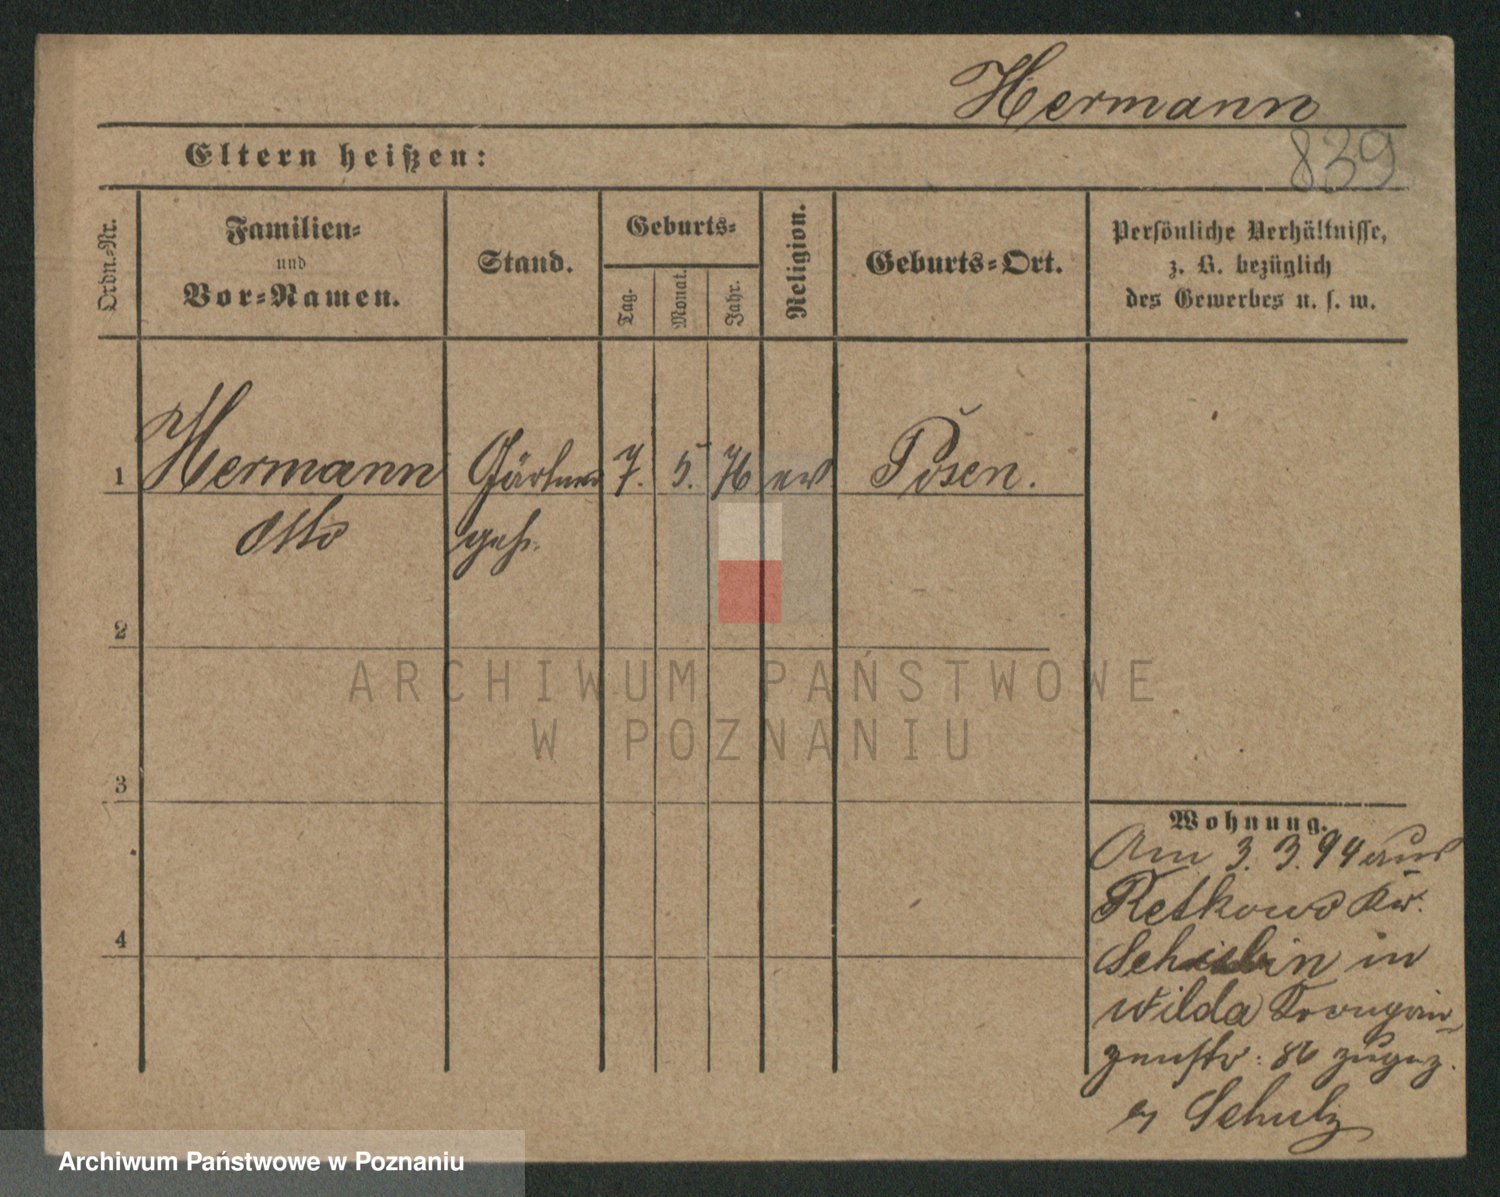 Hermann
839
Eltern heißen:
Ordn.-Nr.
Familien-
und
Vor-Namen.
Stand.
Geburts-
Tag.
Monat.
Jahr.
Religion.
Geburts-Ort.
Persönliche Verhältnisse,
z. B. bezüglich
des Gewerbes u. s. w.
1 Hermann Gärtner 7. 5. 76 ev Posen.
Otto geh.
2
3
4
Wohnung.
Am 3. 3. 94 aus
Retkowo Kr.
Schubin in
Wilda Kronprin-
zenstr: 86 zugez.
Schulz
ARCHIWUM PAŃSTWOWE
W POZNANIU
Archiwum Państwowe w Poznaniu